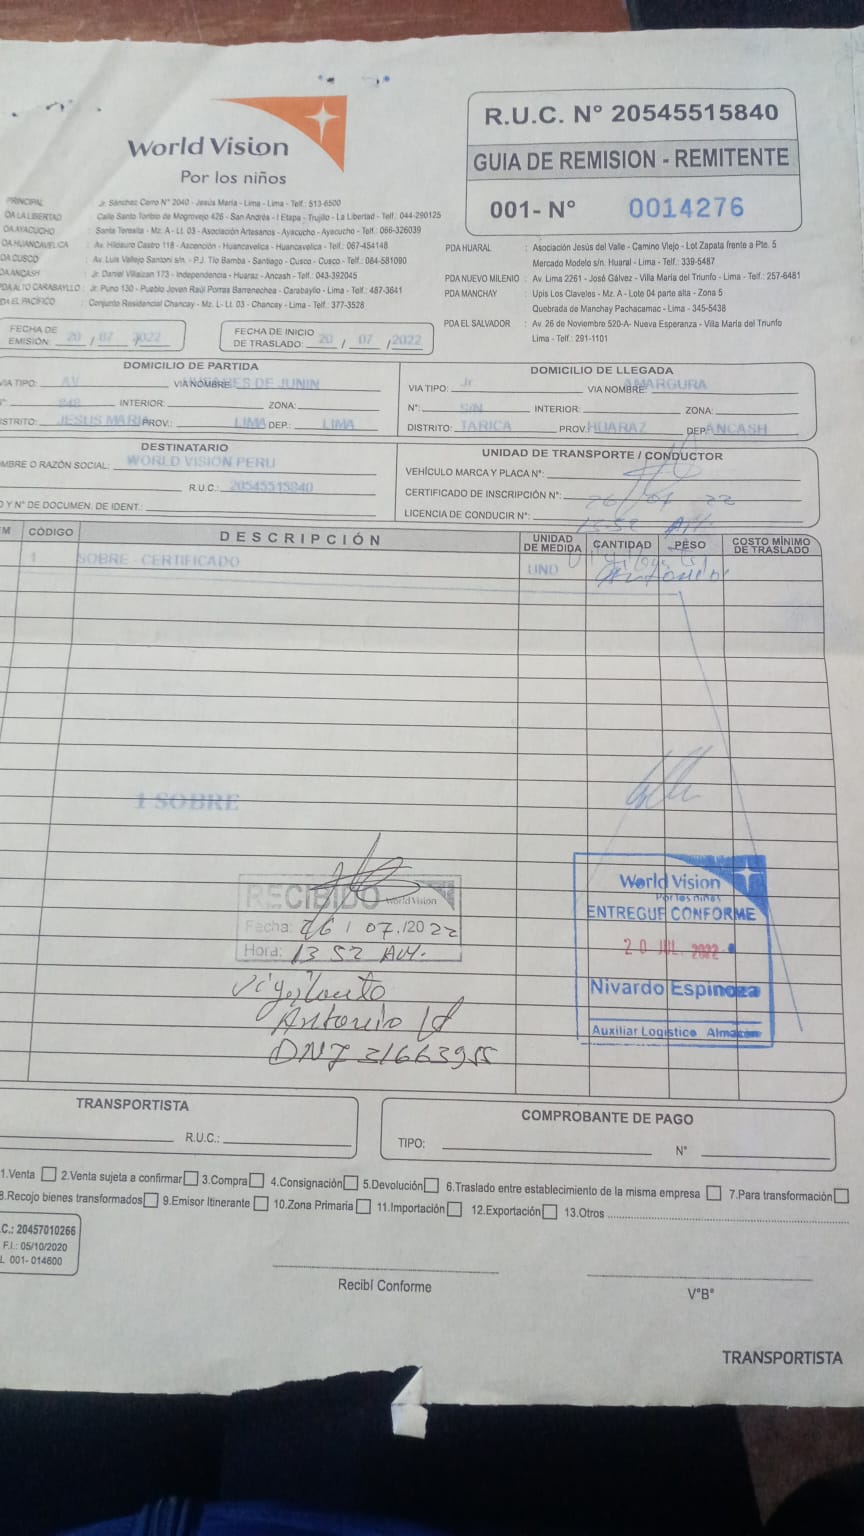 World Vision
Por los niños
R.U.C. N° 20545515840
GUIA DE REMISION - REMITENTE
001- N° 0014276
PRINCIPAL Jr. Sánchez Cerro N° 2040 - Jesús María - Lima - Lima - Telf.: 513-6500
DA LA LIBERTAD Calle Santo Toribio de Mogrovejo 426 - San Andrés - I Etapa - Trujillo - La Libertad - Telf. 044-290125
DA AYACUCHO : Santa Teresita - Mz. A - Lt. 03 - Asociación Artesanos - Ayacucho - Ayacucho - Telf. 066-326039
DA HUANCAVELICA : Av. Hildauro Castro 118 - Ascención - Huancavelica - Huancavelica - Telf.: 067-454148
DA CUSCO : Av. Luis Vallejo Santoni s/n. - P.J. Tío Bamba - Santiago - Cusco - Cusco - Telf.: 084-581090
DA ANCASH : Jr. Daniel Villaizan 173 - Independencia - Huaraz - Ancash - Telf.: 043-392045
PDA ALTO CARABAYLLO : Jr. Puno 130 - Pueblo Joven Raúl Porras Barrenechea - Carabayllo - Lima - Telf.: 487-3641
DA EL PACÍFICO : Conjunto Residencial Chancay - Mz. L- Lt. 03 - Chancay - Lima - Telf.: 377-3528
PDA HUARAL : Asociación Jesús del Valle - Camino Viejo - Lot Zapata frente a Pte. 5
Mercado Modelo s/n. Huaral - Lima - Telf.: 339-5487
PDA NUEVO MILENIO : Av. Lima 2261 - José Gálvez - Villa María del Triunfo - Lima - Telf.: 257-6481
PDA MANCHAY : Upis Los Claveles - Mz. A - Lote 04 parte alta - Zona 5
Quebrada de Manchay Pachacamac - Lima - 345-5438
PDA EL SALVADOR : Av. 26 de Noviembre 520-A- Nueva Esperanza - Villa María del Triunfo
Lima - Telf.: 291-1101
FECHA DE EMISIÓN: 20 / 07 / 2022
FECHA DE INICIO DE TRASLADO: 20 / 07 / 2022
DOMICILIO DE PARTIDA
VIA TIPO: AV VIA NOMBRE: DE JUNIN
INTERIOR: ZONA:
DISTRITO: JESUS MARIA PROV.: LIMA DEP.: LIMA
DOMICILIO DE LLEGADA
VIA TIPO: Jr VIA NOMBRE: AMARGURA
N°: S/N INTERIOR: ZONA:
DISTRITO: TARICA PROV. HUARAZ DEP. ANCASH
DESTINATARIO
OMBRE O RAZÓN SOCIAL: WORLD VISION PERU
R.U.C.: 20545515840
O Y N° DE DOCUMEN. DE IDENT.:
UNIDAD DE TRANSPORTE / CONDUCTOR
VEHÍCULO MARCA Y PLACA N°:
CERTIFICADO DE INSCRIPCIÓN N°:
LICENCIA DE CONDUCIR N°:
M CÓDIGO DESCRIPCIÓN UNIDAD DE MEDIDA CANTIDAD PESO COSTO MÍNIMO DE TRASLADO
1 SOBRE - CERTIFICADO UND
1 SOBRE
RECIBIDO World Vision
Fecha: 26 / 07 / 2022
Hora: 13 52 AM.
Vigilante
Antonio
DNI 31663955
World Vision
Por los niños
ENTREGUE CONFORME
20 JUL. 2022
Nivardo Espinoza
Auxiliar Logístico Almacén
TRANSPORTISTA
R.U.C.:
COMPROBANTE DE PAGO
TIPO: N°
1.Venta 2.Venta sujeta a confirmar 3.Compra 4.Consignación 5.Devolución 6.Traslado entre establecimiento de la misma empresa 7.Para transformación
8.Recojo bienes transformados 9.Emisor Itinerante 10.Zona Primaria 11.Importación 12.Exportación 13.Otros
C.: 20457010266
F.I.: 05/10/2020
L 001- 014600
Recibí Conforme
V°B°
TRANSPORTISTA